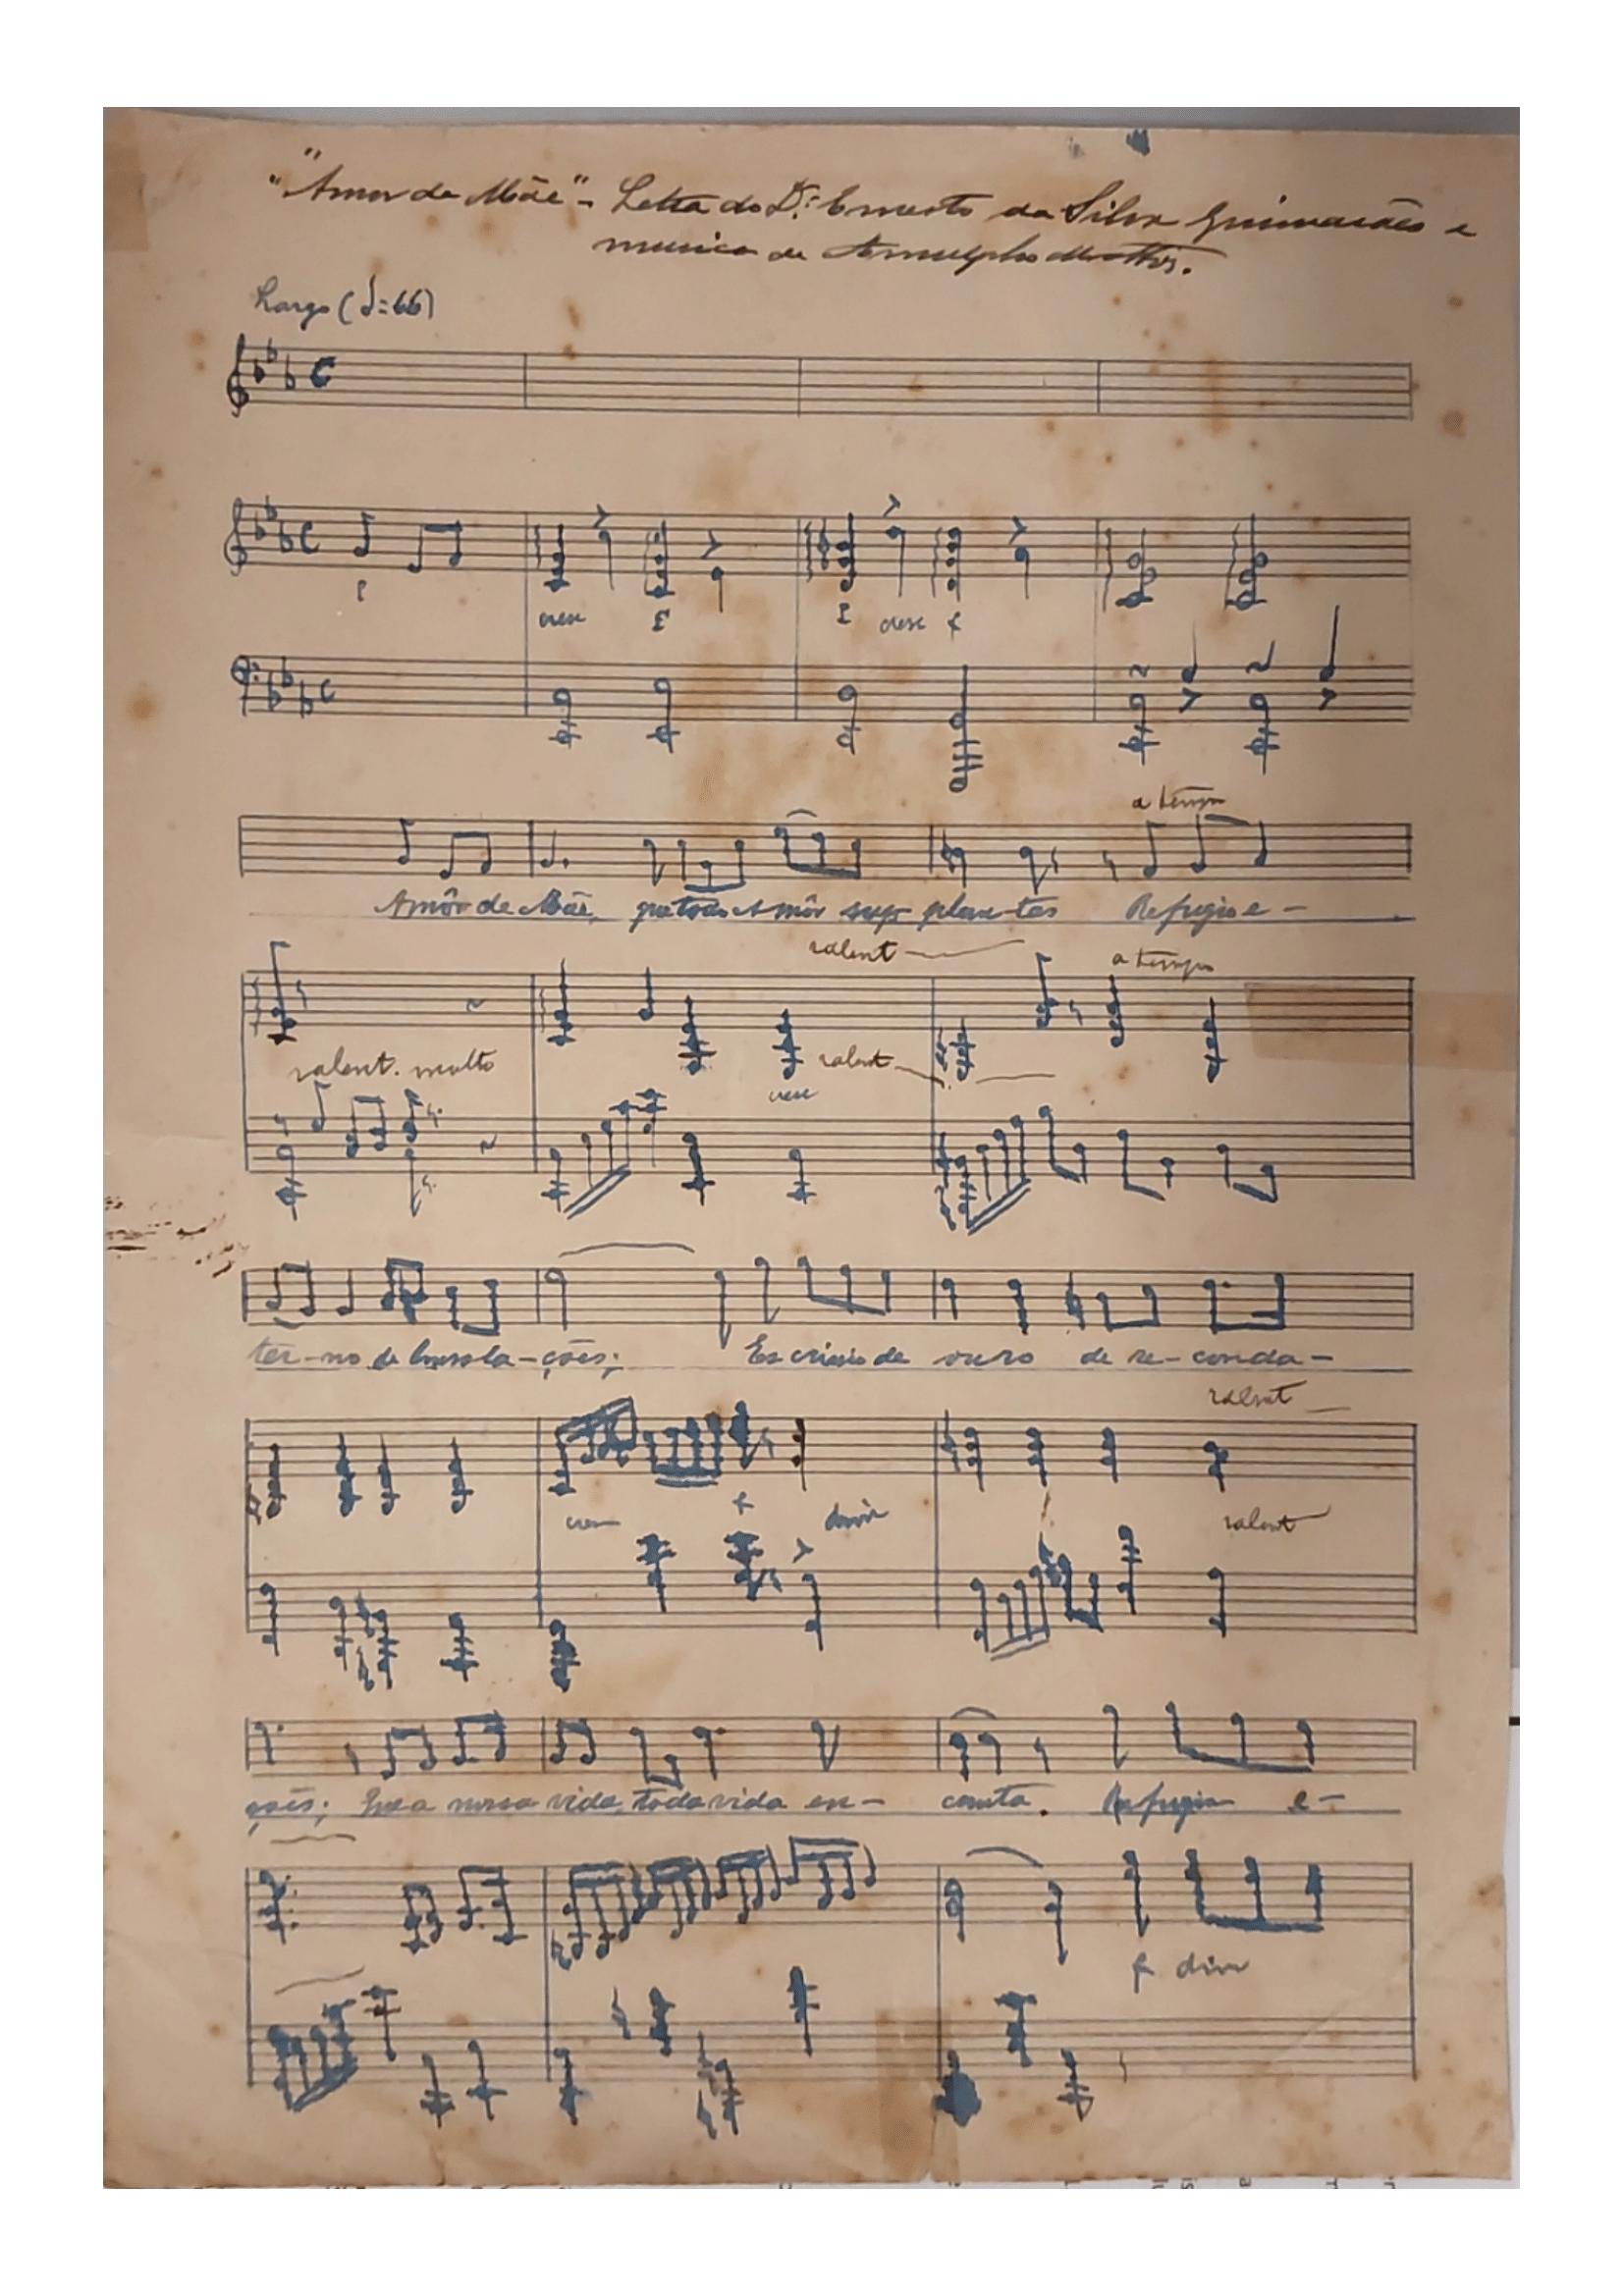 "Amor de Mãe" - Letra do Dr. Ernesto da Silva Guimarães e
musica de Arnulpho Mattos.
Largo (♩=66)
cresc
cresc f
a tempo
Amôr de Mãe, que todo Amôr sup plan-tas Refugio e-
ralent
a tempo
ralent. molto
ralent
cresc
ter-no de Consola-ções; Es crinio de ouro de re-corda-
ralent
f
dim
ralent
ções; nossa vida, toda vida en- canta. Refugio e-
f dim